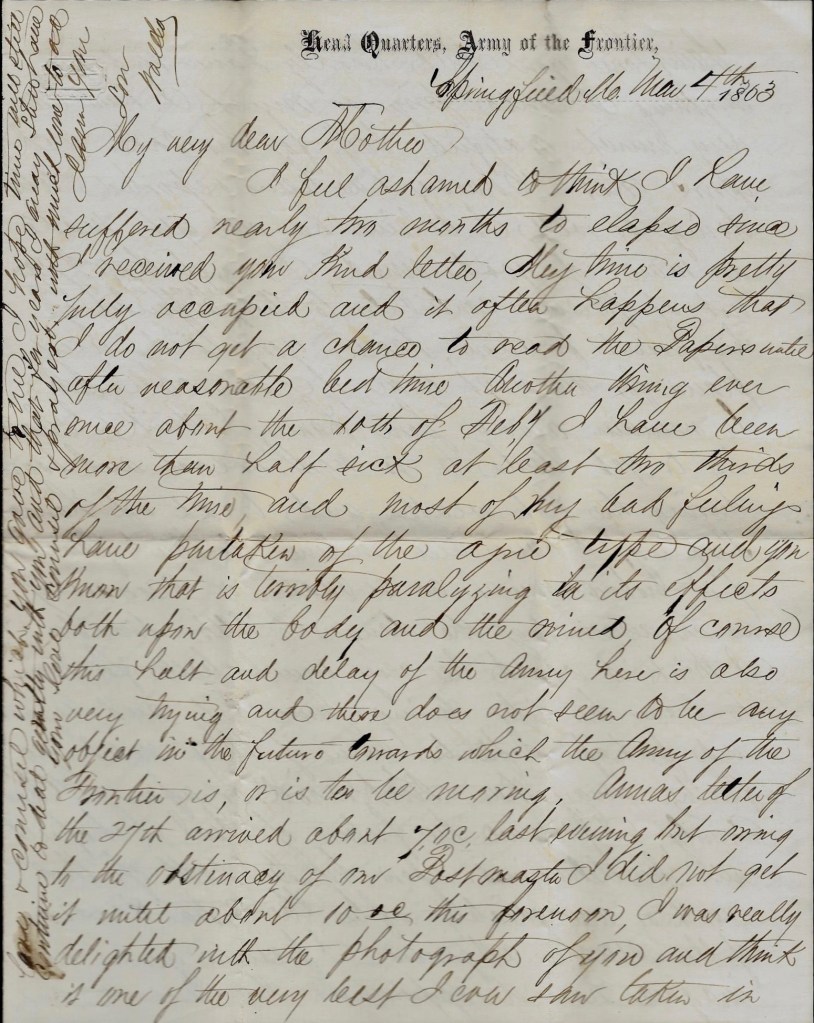 Head Quarters, Army of the Frontier,
Springfield Mo. Mar 4th 1863
My very dear Mother
I feel ashamed to think I have
suffered nearly two months to elapse since
I received your kind letter, My time is pretty
fully occupied and it often happens that
I do not get a chance to read the Papers until
after reasonable bed time Another thing ever
since about the 10th of Feby I have been
more than half sick at least two thirds
of the time, and most of my bad feelings
have partaken of the ague type and you
know that is terribly paralyzing in its effects
both upon the body and the mind, of course
this halt and delay of the Army here is also
very trying and there does not seem to be any
object in the future towards which the Army of the
Frontier is, or is to be moving, Annas letter of
the 27th arrived about 7 oc, last evening but owing
to the obstinacy of our Postmaster I did not get
it until about 10 oc this forenoon, I was really
delighted with the photograph of you and think
is one of the very best I ever saw taken in
love & counsel which you gave to me I hope time will still
continue to deal gently with you and that for years I may still have
your love counsel & prayers, with much love to all
I am your
Son
Waldo